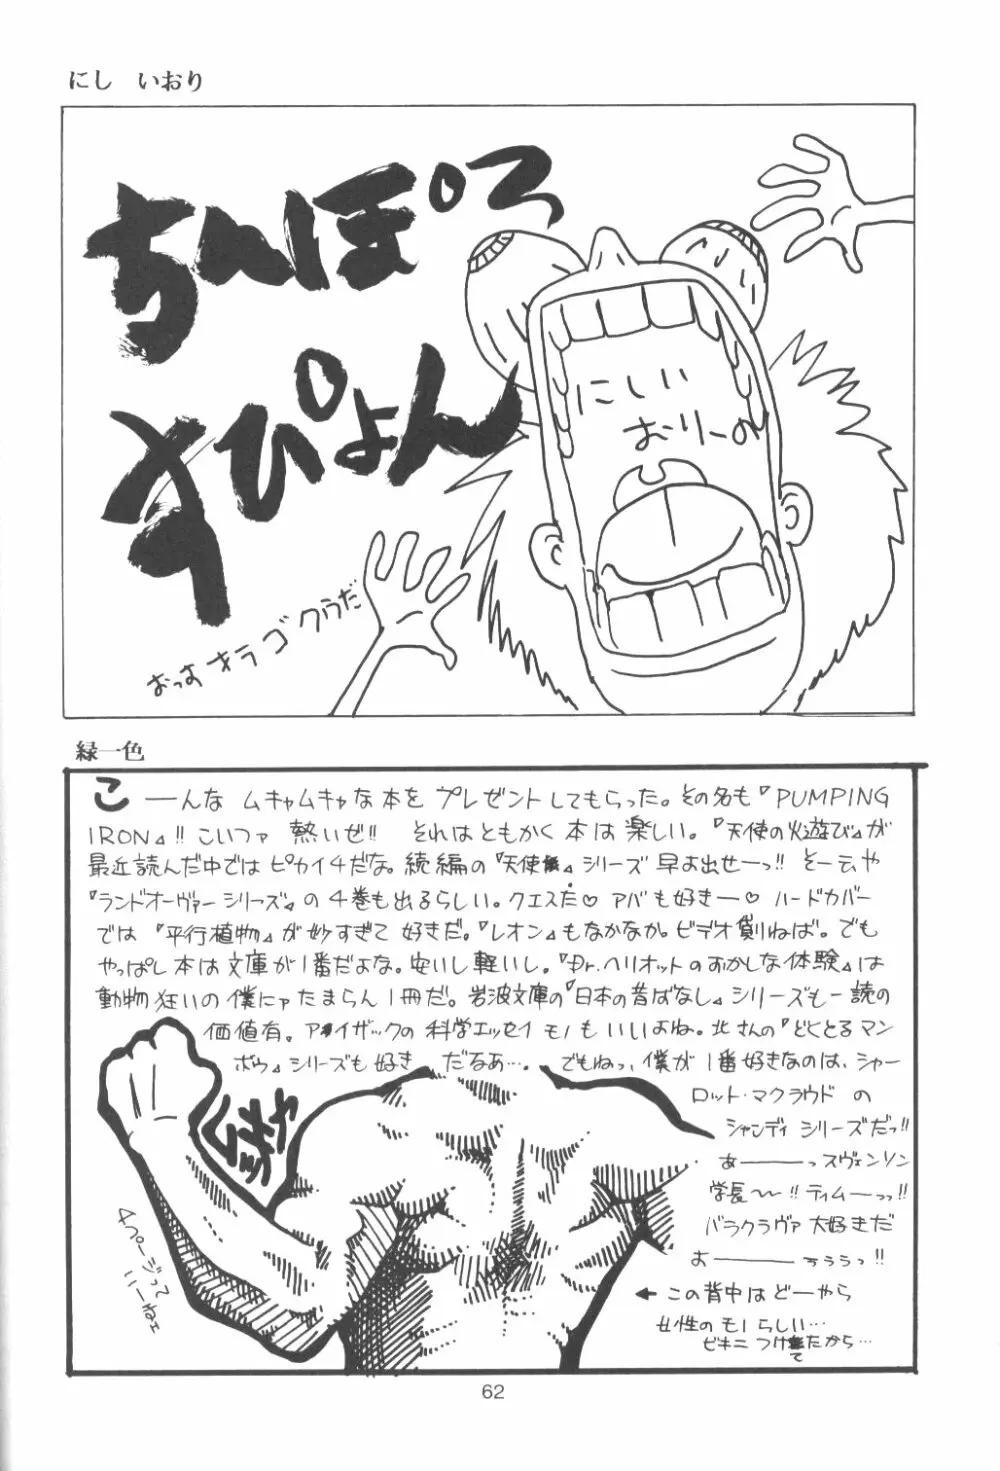 にし いおり
ちんぽろ
すぴょん
にしい
おりーの
おっす オラ ゴクウだ
緑一色
こ——んな ムキャムキャな本を プレゼントしてもらった。その名も『PUMPING
IRON』!! こいつァ 熱いぜ!! それはともかく 本は楽しい。『天使の火遊び』が
最近読んだ中では ピカイチだな。続編の『天使』シリーズ 早よ出せーっ!! そーいや
『ランドオーヴァーシリーズ』の 4巻も出るらしい。クエスだ♡ アバも好きー♡ ハードカバー
では『平行植物』が妙すぎて 好きだ。『レオン』もなかなか。ビデオ借りねば。でも
やっぱし 本は文庫が1番だよな。安いし軽いし。『Dr.ヘリオットのおかしな体験』は
動物狂いの僕にァたまらん1冊だ。岩波文庫の『日本の昔ばなし』シリーズも一読の
価値有。アイザックの科学エッセイモノもいいよね。北さんの『どくとるマン
ボウ』シリーズも好き だなあ…。でもねっ、僕が1番好きなのは、シャー
ロット・マクラウド の
シャンディ シリーズだっ!!
あ———っスヴェンソン
学長〜〜!! ティムーっっ!!
バラクラヴァ 大好きだ
お———ぅぅぅっ!!
← この背中はどーやら
女性のモノらしい…
ビキニつけてたから…
4ページって
いーねェ
62